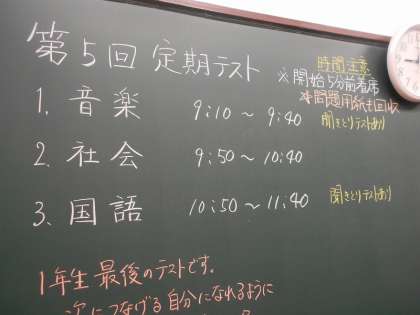 第5回 定期テスト
時間注意
※開始5分前着席
※問題用紙も回収
1. 音楽 9:10～9:40 聞きとりテストあり
2. 社会 9:50～10:40
3. 国語 10:50～11:40 聞きとりテストあり
1年生 最後のテストです。
次につなげる自分になれるように